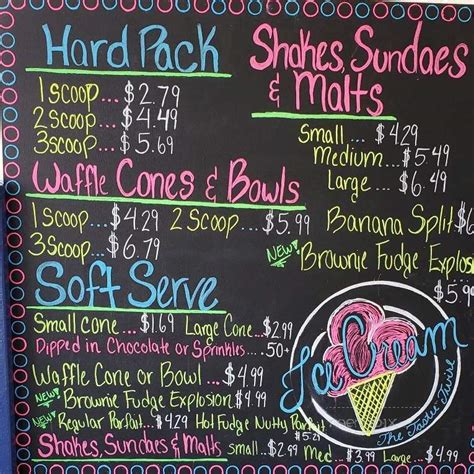 Hard Pack
1 scoop... $2.79
2 scoop... $4.49
3 scoop... $5.69
Waffle Cones & Bowls
1 scoop... $4.29 2 scoop... $5.99
3 scoop... $6.79
Soft Serve
Small cone... $1.69 Large Cone... $2.99
Dipped in Chocolate or Sprinkles... .50+
Waffle Cone or Bowl ... $4.99
NEW! Brownie Fudge Explosion. $4.99
NEW! Regular Parfait... $4.29 Hot Fudge Nutty Parfait
$5.29
Shakes, Sundaes & Malts small $2.99 med... $3.99 Large... $4.99
Shakes, Sundaes
& Malts
Small... $4.29
Medium... $5.49
Large... $6.49
Banana Split $6
NEW! Brownie Fudge Explosion
$5.99
Ice Cream
The Tastee Twist